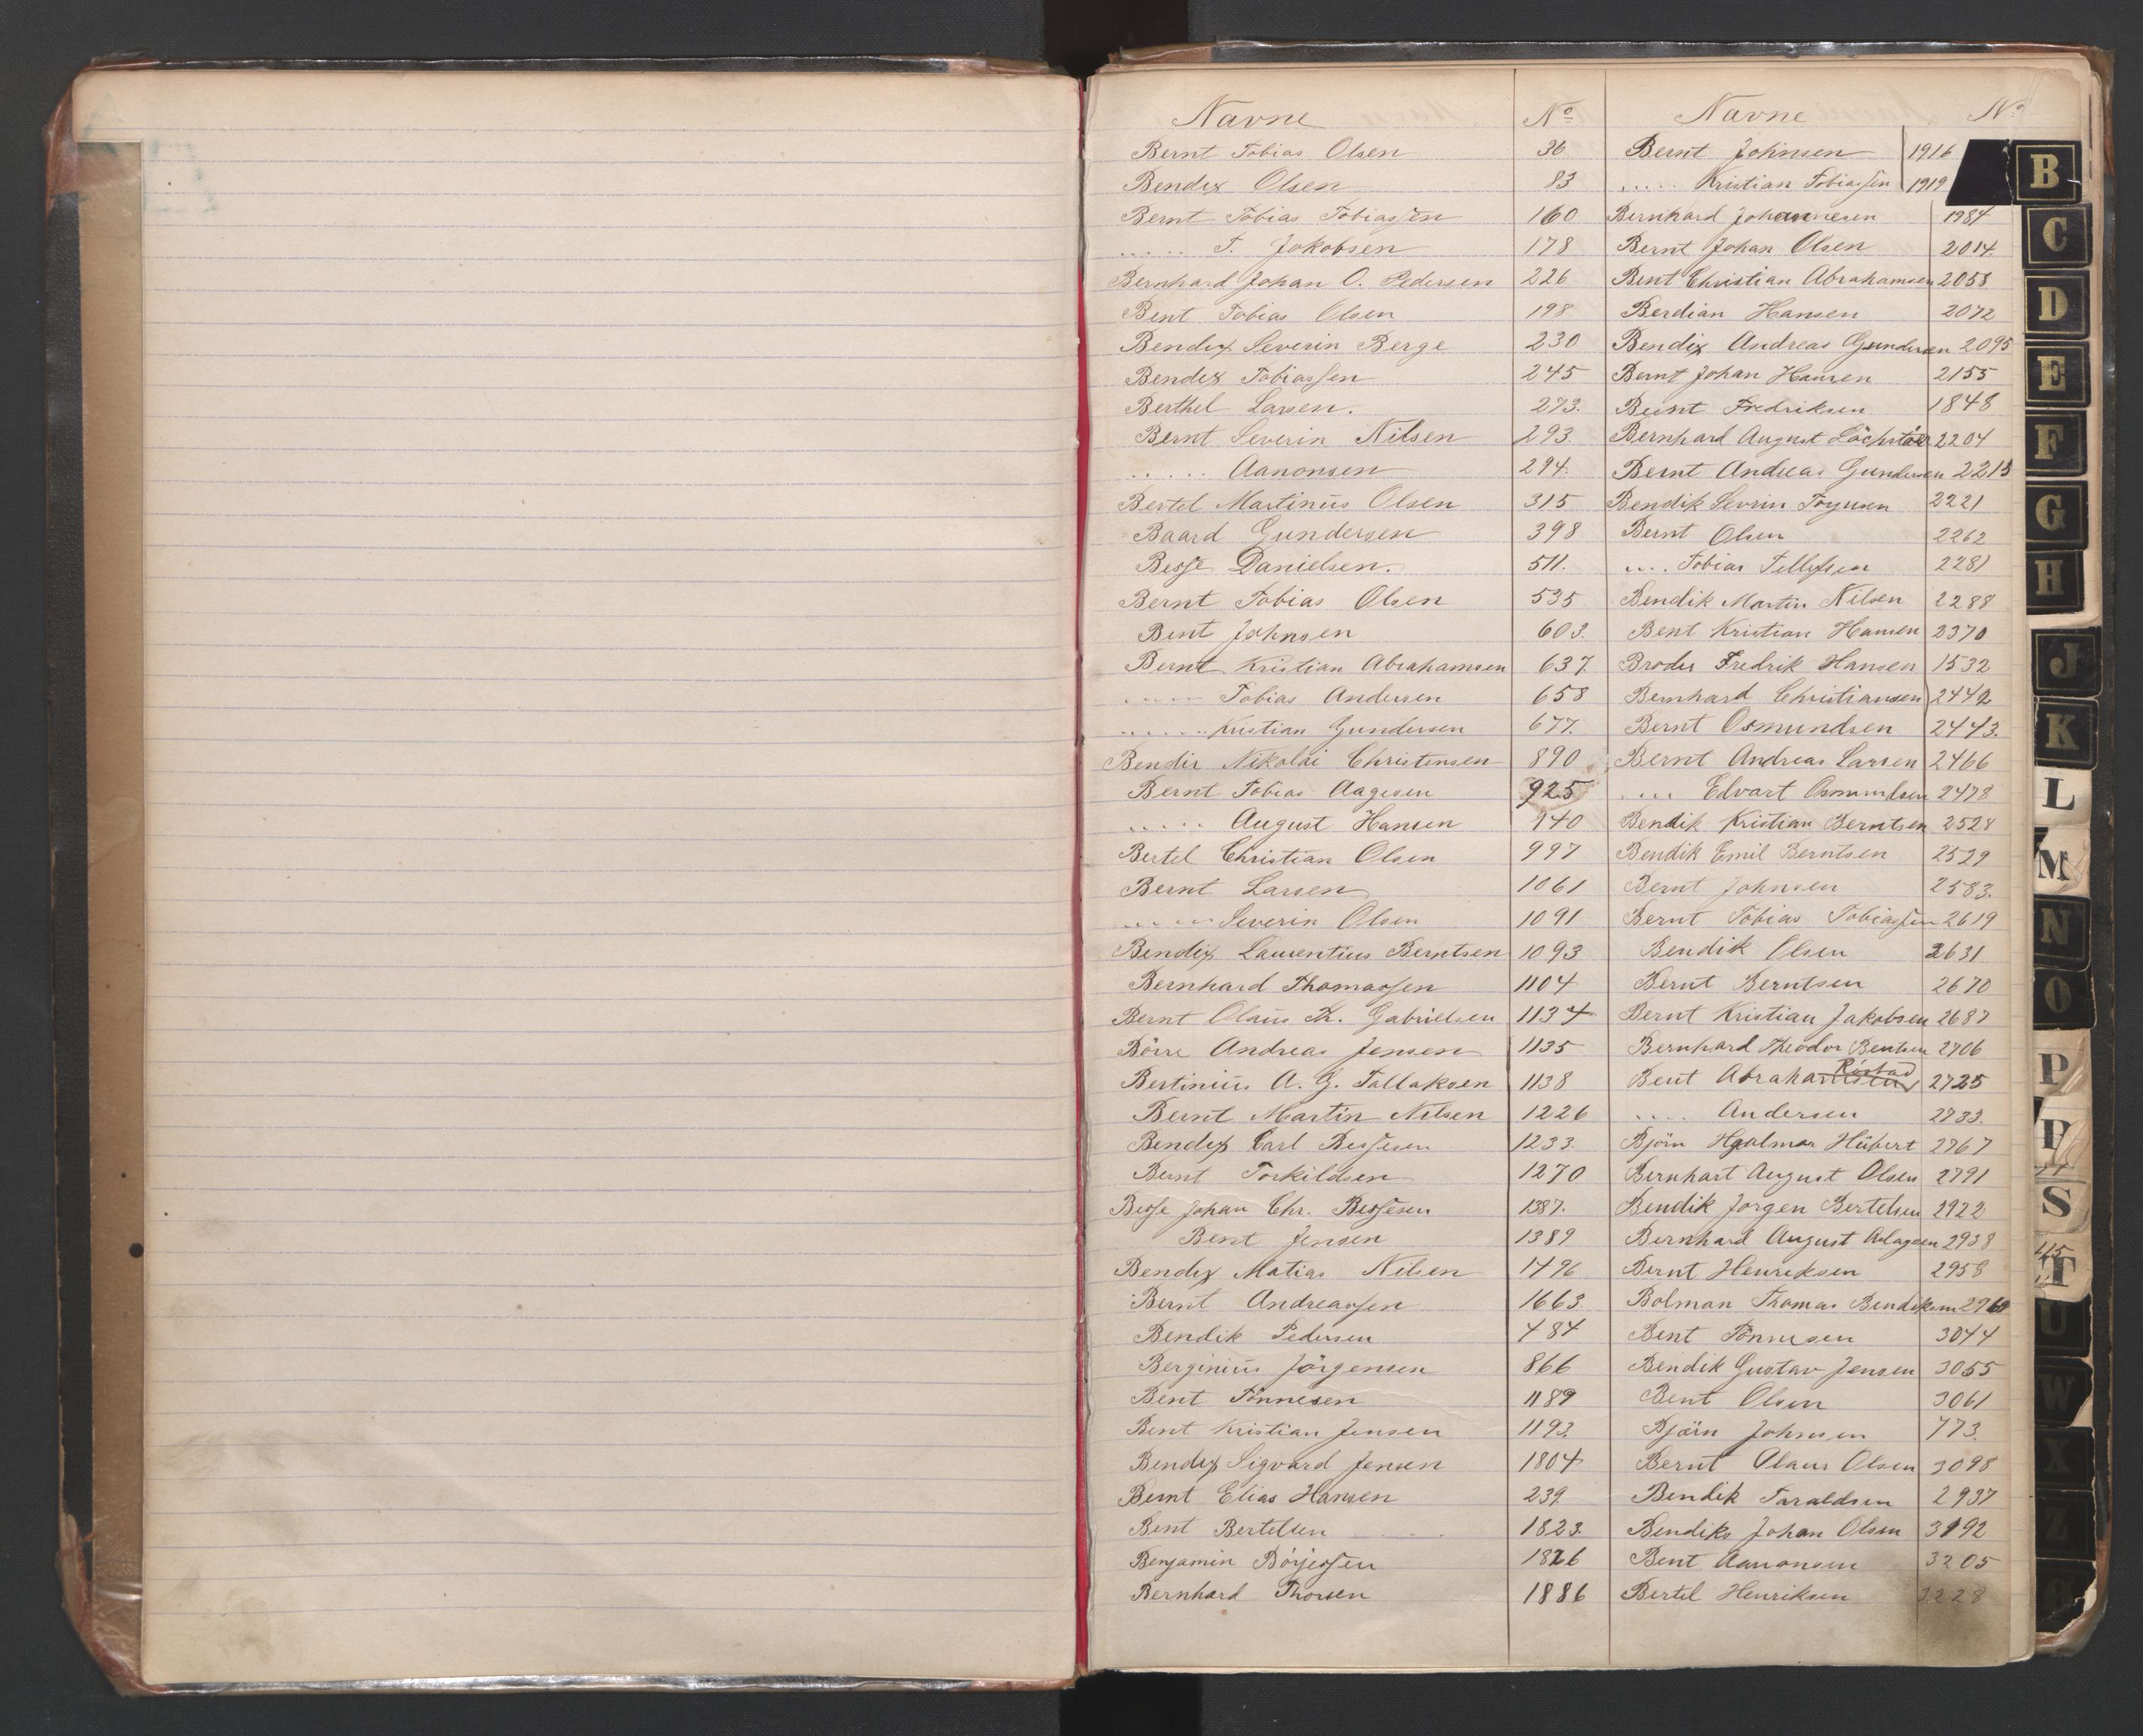 Navne Nº
Bernt Tobias Olsen 36
Bendix Olsen 83
Bernt Tobias Tobiassen 160
..... T. Jakobsen 178
Bernhard Johan O. Pedersen 226
Bent Tobias Olsen 198
Bendix Severin Berge 230
Bendix Tobiassen 245
Berthel Larsen. 273.
Bernt Severin Nilsen 293.
..... Aanonsen 294.
Bertel Martinus Olsen 315
Baard Gundersen 398
Besse Danielsen. 511.
Bernt Tobias Olsen 535
Bent Johnsen 603.
Bernt Kristian Abrahamsen 637.
..... Tobias Andersen 658
..... Kristian Gundersen 677.
Bendix Nikolai Christensen 890
Bernt Tobias Aagesen 925
..... August Hansen 940
Bertel Christian Olsen 997
Bernt Larsen 1061
..... Severin Olsen 1091
Bendix Laurentius Berntsen 1093
Bernhard Thomassen 1104
Bernt Olaus Th. Gabrielsen 1134
Börre Andreas Jensen 1135
Bertinius A. G. Tallaksen 1138
Bernt Martin Nilsen 1226
Bendix Carl Bessesen 1233.
Bernt Torkildsen 1270
Besse Johan Chr. Bessesen 1387.
Bent Jensen 1389
Bendix Matias Nilsen 1496
Bernt Andreassen 1663.
Bendik Pedersen 484
Berginius Jörgensen 866
Bent Tönnesen 1189
Bent Kristian Jensen 1193.
Bendix Sigvard Jensen 1804
Bernt Elias Hansen 239
Bent Bertelsen 1823.
Benjamin Börjessen 1826
Bernhard Thorsen 1886
Navne Nº
Bernt Johnsen 1916
..... Kristian Tobiassen 1919
Bernhard Johannesen 1984
Bernt Johan Olsen 2014.
Bent Christian Abrahamsen 2058
Berdian Hansen 2072
Bendix Andreas Gundersen 2095
Bernt Johan Hansen 2155
Bernt Fredriksen 1848
Bernhard August 2204
Bernt Andreas Gundersen 2215
Bendik Sevrin 2221
Bernt Olsen 2262
.... Tobias Tellefsen 2281
Bendik Martin Nilsen 2288
Bent Kristian Hansen 2370
Broder Fredrik Hansen 1532
Bernhard Christiansen 2442
Bernt Osmundsen 2443.
Bernt Andreas Larsen 2466
.... Edvart Osmundsen 2478
Bendik Kristian Berntsen 2528
Bendik Emil Berntsen 2529
Bernt Johnsen 2583.
Bernt Tobias Tobiassen 2619
Bendik Olsen 2631
Bernt Berntsen 2670
Bernt Kristian Jakobsen 2687
Bernhard Theodor Bentsen 2706
Bent Abrahamsen 2725
.... Andersen 2733.
Björn Hjalmar Hübert 2767
Bernhart August Olsen 2791
Bendik Jörgen Bertelsen 2922
Bernhard August Aslagsen 2938
Bernt Henriksen 2958
Bolman Thomas Bendiksen
Bent Tönnesen 3044
Bendik Gustav Jensen 3055
Bent Olsen 3061
Björn Johnsen 773.
Bernt Olaus Olsen 3098
Bendik Taraldsen 2937
Bendiks Johan Olsen 3192
Bent Aanonsen 3205
Bertel Henriksen 3228
B
C
D
E
F
G
H
J
K
L
M
N
O
P
S
T
U
W
X
Z